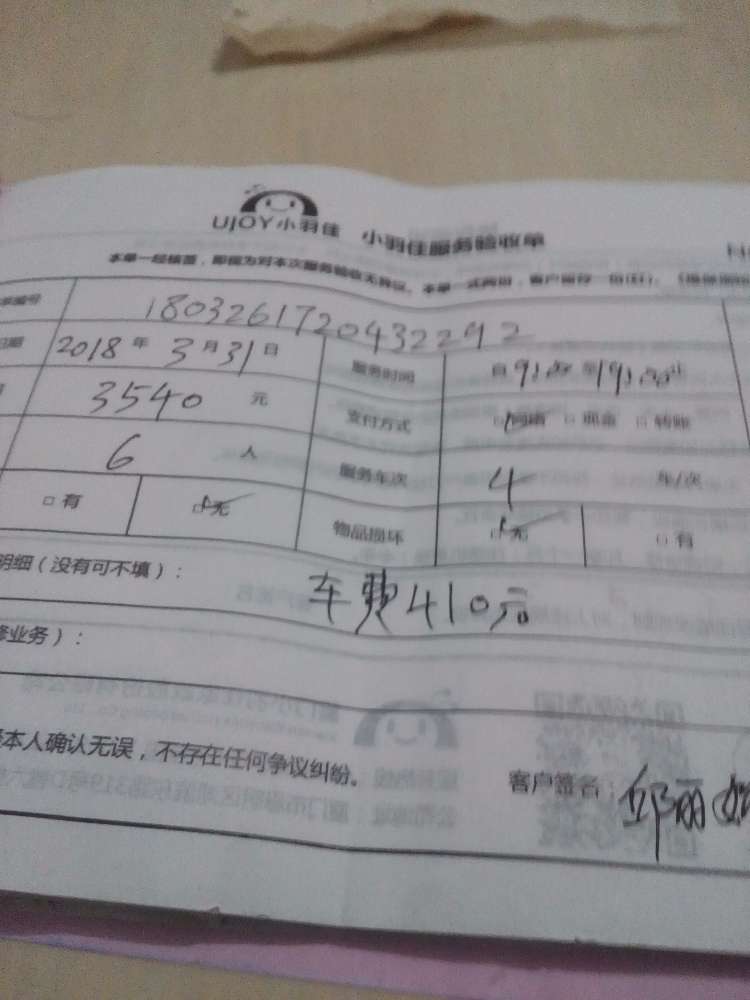 UJOY小羽佳 小羽佳服务验收单
本单一经核签，即视为对本次服务验收无异议。本单一式两份，客户留存一份
编号 1803261720432292
日期 2018年3月31日 服务时间 自9:00至19:00止
3540元 支付方式 网络 现金 转账
6人 服务车次 4 车/次
有 无 物品损坏 无 有
明细（没有可不填）： 车费410元
业务）：
本人确认无误，不存在任何争议纠纷。 客户签名：邱丽